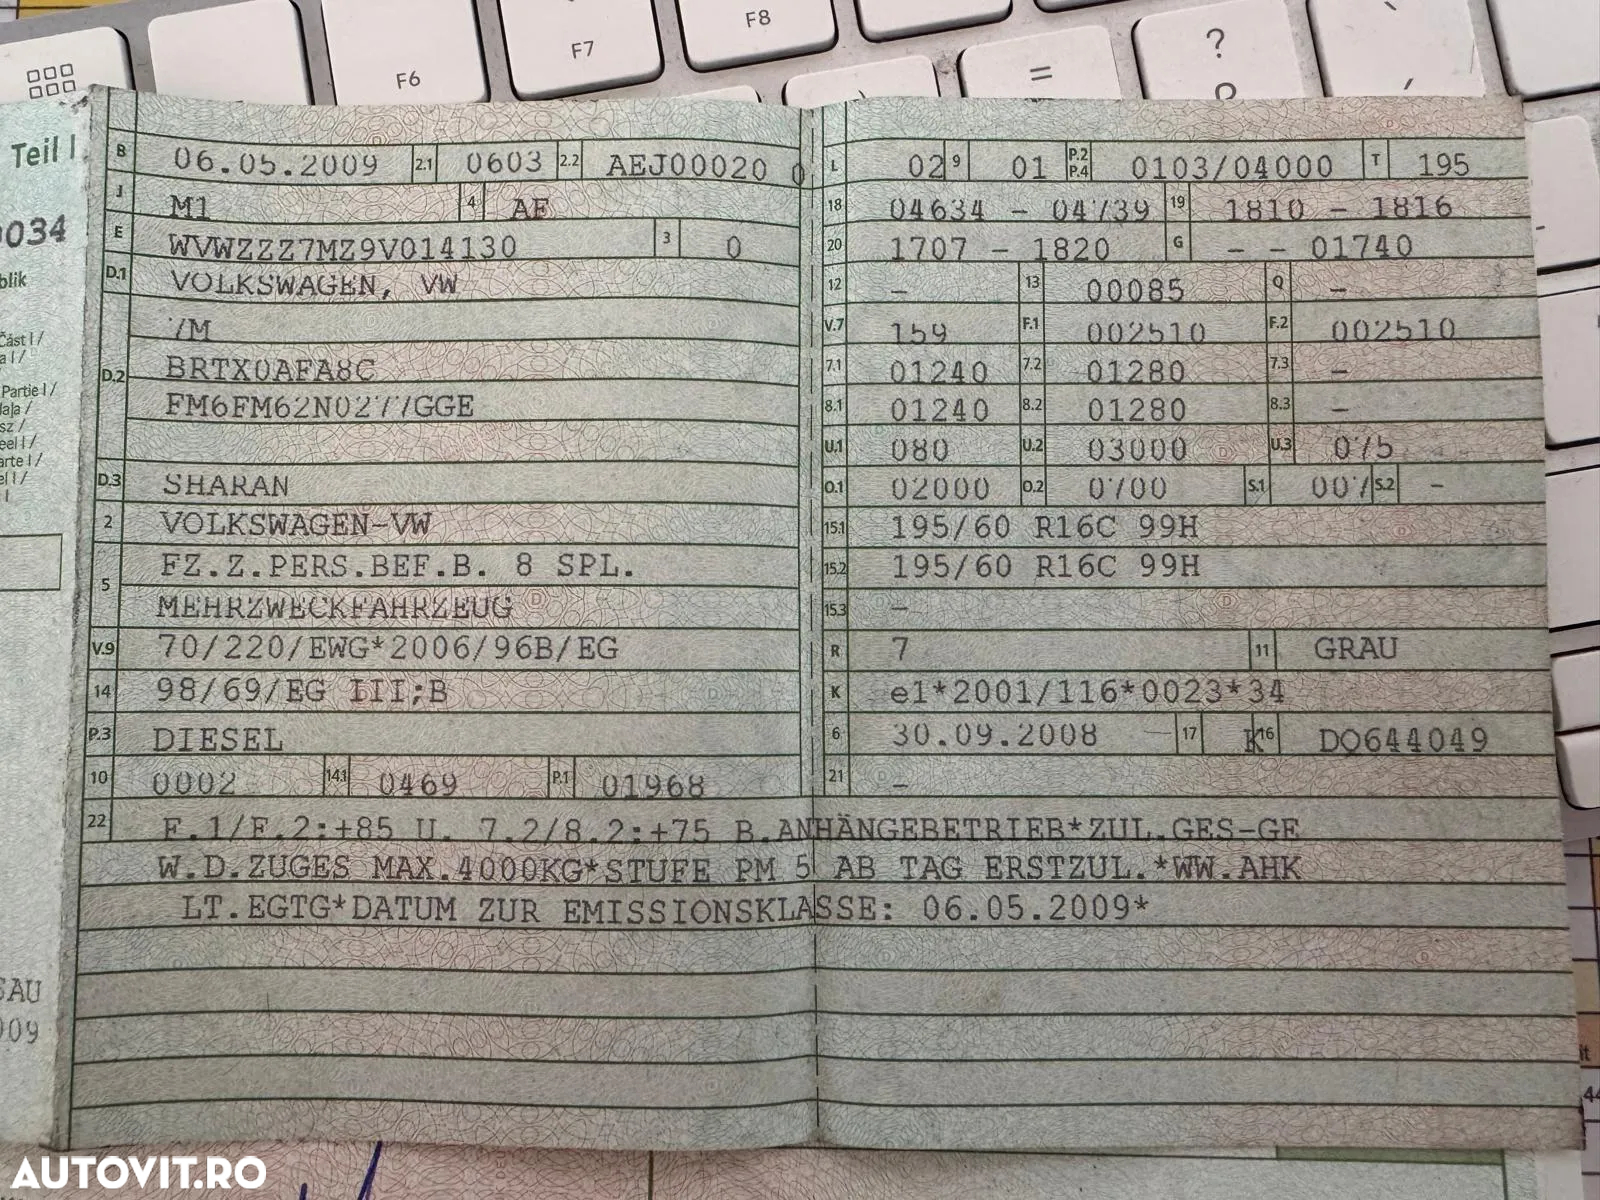 F6
F7
F8
=
?
Teil I
0034
blik
Část I /
a I /
Partie I /
daļa /
sz /
eel I /
arte I /
el I /
I
SAU
009
B 06.05.2009 2.1 0603 2.2 AEJ00020 0
J M1 4 AF
E WVWZZZ7MZ9V014130 3 0
D.1 VOLKSWAGEN, VW
7M
D.2 BRTX0AFA8C
FM6FM62N0277GGE
D.3 SHARAN
2 VOLKSWAGEN-VW
5 FZ.Z.PERS.BEF.B. 8 SPL.
MEHRZWECKFAHRZEUG
V.9 70/220/EWG*2006/96B/EG
14 98/69/EG III;B
P.3 DIESEL
10 0002 14.1 0469 P.1 01968
L 02 9 01 P.2 P.4 0103/04000 T 195
18 04634 - 04739 19 1810 - 1816
20 1707 - 1820 G - - 01740
12 - 13 00085 Q -
V.7 159 F.1 002510 F.2 002510
7.1 01240 7.2 01280 7.3 -
8.1 01240 8.2 01280 8.3 -
U.1 080 U.2 03000 U.3 075
O.1 02000 O.2 0700 S.1 007 S.2 -
15.1 195/60 R16C 99H
15.2 195/60 R16C 99H
15.3 -
R 7 11 GRAU
K e1*2001/116*0023*34
6 30.09.2008 17 K 16 DQ644049
21 -
22 F.1/F.2:+85 U. 7.2/8.2:+75 B.ANHÄNGEBETRIEB*ZUL.GES-GE
W.D.ZUGES MAX.4000KG*STUFE PM 5 AB TAG ERSTZUL.*WW.AHK
LT.EGTG*DATUM ZUR EMISSIONSKLASSE: 06.05.2009*
AUTOVIT.RO